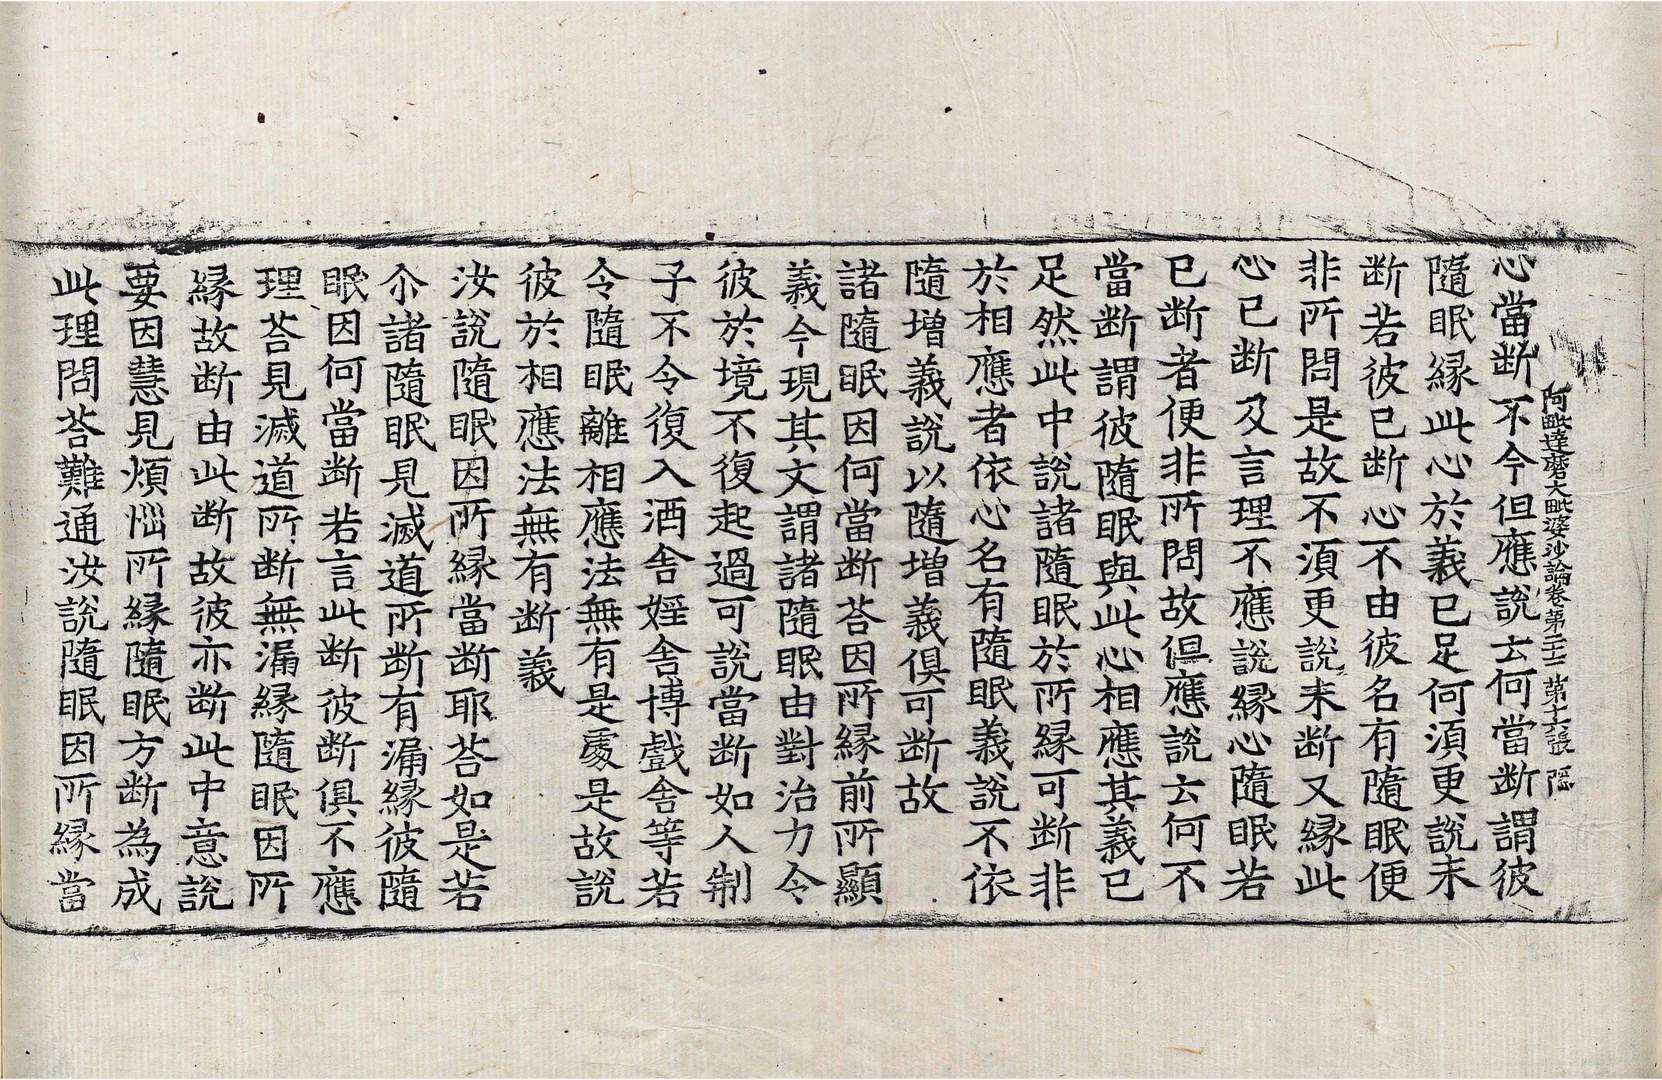 阿毗達磨大毗婆沙論卷第二十二 第十六張 隱
心當断不今但應說云何當断謂彼
隨眠縁此心於義已足何須更說未
断若彼已断心不由彼名有隨眠便
非所問是故不須更說未断又縁此
心已断及言理不應說縁心隨眠若
已断者便非所問故但應說云何不
當断謂彼隨眠與此心相應其義已
足然此中說諸隨眠於所縁可断非
於相應者依心名有隨眠義說不依
隨增義說以隨增義俱可断故
諸隨眠因何當断荅因所縁前所顯
義今現其文謂諸隨眠由對治力令
彼於境不復起過可說當断如人制
子不令復入酒舍婬舍博戲舍等若
令隨眠離相應法無有是處是故說
彼於相應法無有断義
汝說隨眠因所縁當断耶荅如是若
尒諸隨眠見滅道所断有漏縁彼隨
眠因何當断若言此断彼断俱不應
理荅見滅道所断無漏縁隨眠因所
縁故断由此断故彼亦断此中意說
要因慧見煩惱所縁隨眠方断為成
此理問荅難通汝說隨眠因所縁當